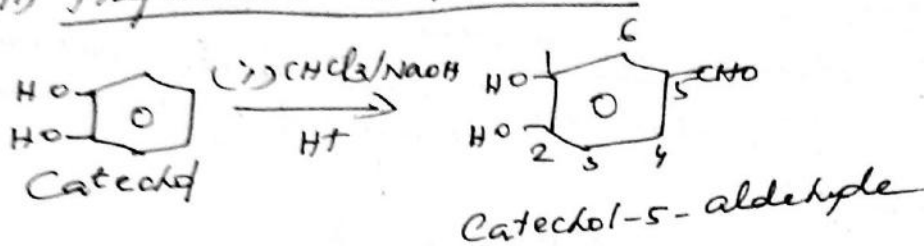 HO
HO
Catechol
(i) CHCl3/NaOH
H+
1
6
HO
CHO
5
HO
2
3
4
Catechol-5-aldehyde